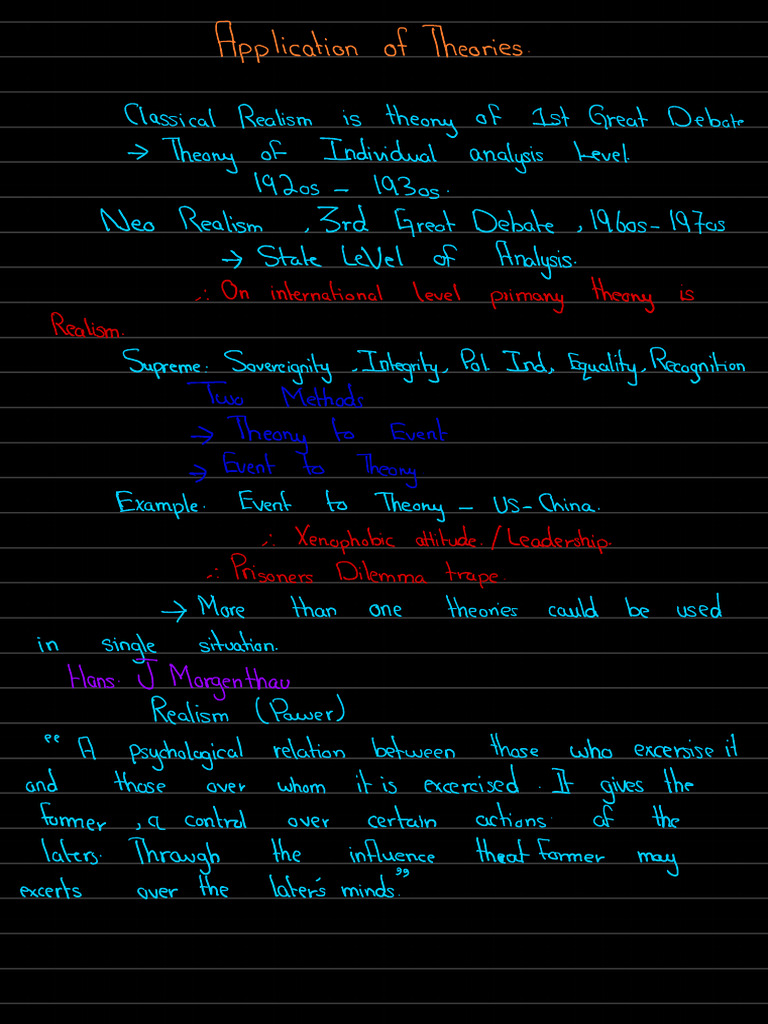 Application of Theories.
Classical Realism is theory of 1st Great Debate
→ Theory of Individual analysis Level.
1920s - 1930s.
Neo Realism , 3rd Great Debate , 1960s- 1970s
→ State LeVel of Analysis.
∴ On international level primary theory is
Realism.
Supreme: Sovereignity , Integrity, Pol. Ind, Equality, Recognition
Two Methods
→ Theory to Event
→ Event to Theory
Example. Event to Theory - US-China.
∴ Xenophobic attitude. / Leadership.
∴ Prisoners Dilemma trape.
→ More than one theories could be used
in single situation.
Hans. J Morgenthau
Realism (Power)
“ A psychological relation between those who excersise it
and those over whom it is excercised. It gives the
former , a control over certain actions of the
laters. Through the influence theat former may
excerts over the later's minds.”